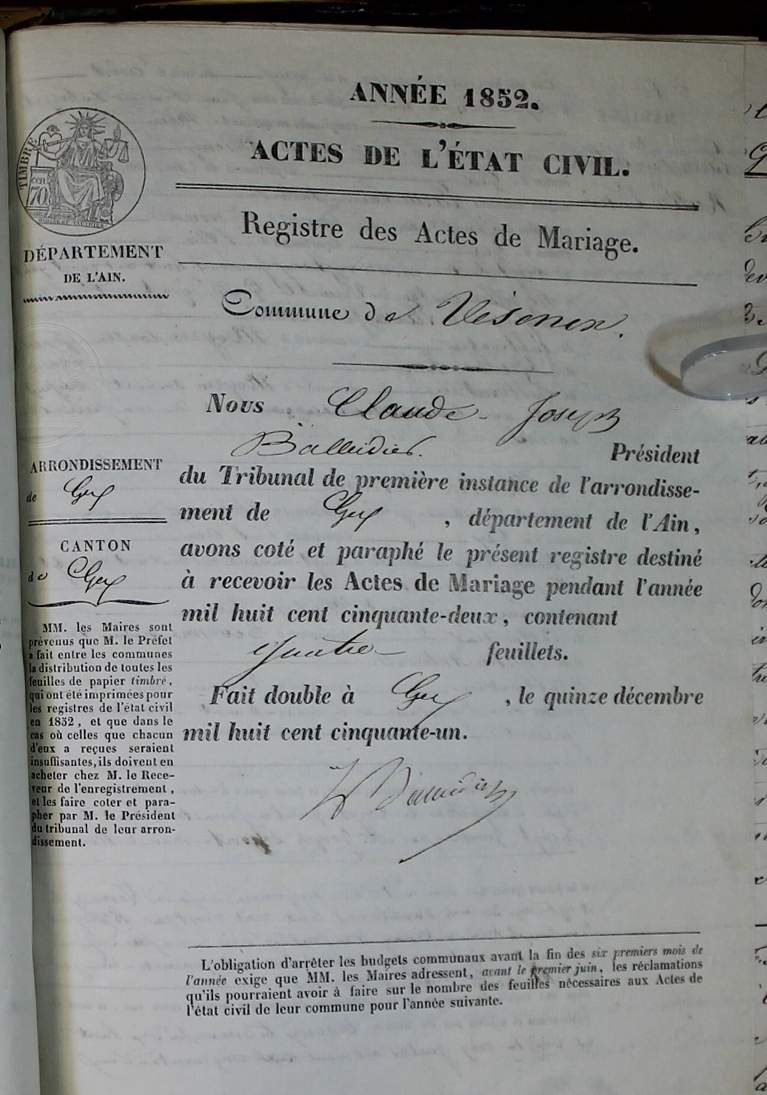 ANNÉE 1852.
ACTES DE L'ÉTAT CIVIL.
Registre des Actes de Mariage.
TIMBRE
cen
70
DÉPARTEMENT
DE L'AIN.
Commune de Vésenex.
Nous Claude-Joseph
Balleidier. Président
du Tribunal de première instance de l'arrondisse-
ment de Gex, département de l'Ain,
avons coté et paraphé le présent registre destiné
à recevoir les Actes de Mariage pendant l'année
mil huit cent cinquante-deux, contenant
quatre feuillets.
Fait double à Gex, le quinze décembre
mil huit cent cinquante-un.
ARRONDISSEMENT
de Gex
CANTON
de Gex
MM. les Maires sont
prévenus que M. le Préfet
a fait entre les communes
la distribution de toutes les
feuilles de papier timbré,
qui ont été imprimées pour
les registres de l'état civil
en 1852, et que dans le
cas où celles que chacun
d'eux a reçues seraient
insuffisantes, ils doivent en
acheter chez M. le Rece-
veur de l'enregistrement,
et les faire coter et para-
pher par M. le Président
du tribunal de leur arron-
dissement.
L'obligation d'arrêter les budgets communaux avant la fin des six premiers mois de
l'année exige que MM. les Maires adressent, avant le premier juin, les réclamations
qu'ils pourraient avoir à faire sur le nombre des feuilles nécessaires aux Actes de
l'état civil de leur commune pour l'année suivante.